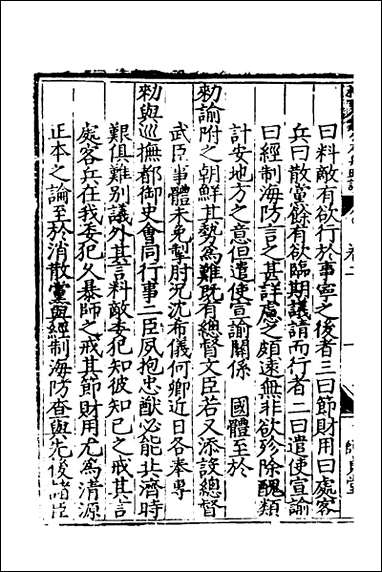 曰料敵有欲行於事寧之後者三曰節財用曰處客
兵曰散黨餘有欲臨期議請而行者二曰遣使宣諭
曰經制海防言之甚詳慮之頗遠無非欲殄除醜類
計安地方之意但遣使宣諭關係 國體至於
勑諭附之朝鮮其勢爲難既有總督文臣若又添設總督
武臣事體未免掣肘況沈希儀何卿近日各奉專
勑與巡撫都御史會同行事二臣夙抱忠猷必能共濟時
艱俱難別議外其言料敵委犯知彼知己之戒其言
處客兵在我委犯久暴師之戒其節財用尤爲清源
正本之論至於消散黨與經制海防查與先後諸臣